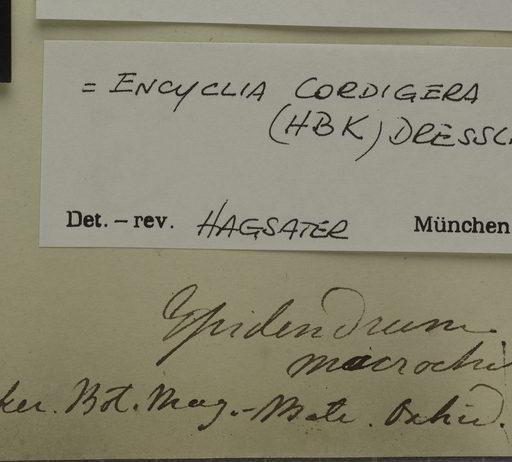 = ENCYCLIA CORDIGERA
(HBK) DRESSL
Det. – rev. HAGSATER München
Epidendrum
macrochi
ker. Bot. Mag. - Bate. Orchid.